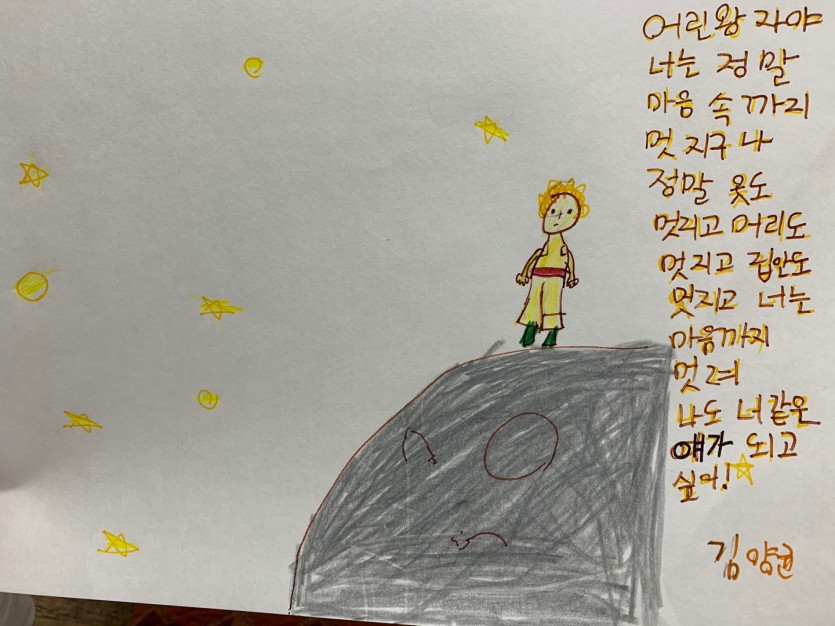 어린왕 자야
너는 정말
마음 속 까지
멋 지구 나
정말 옷도
멋지고 머리도
멋지고 집안도
멋지고 너는
마음까지
멋져
나도 너같은
얘가 되고
싶어!
김